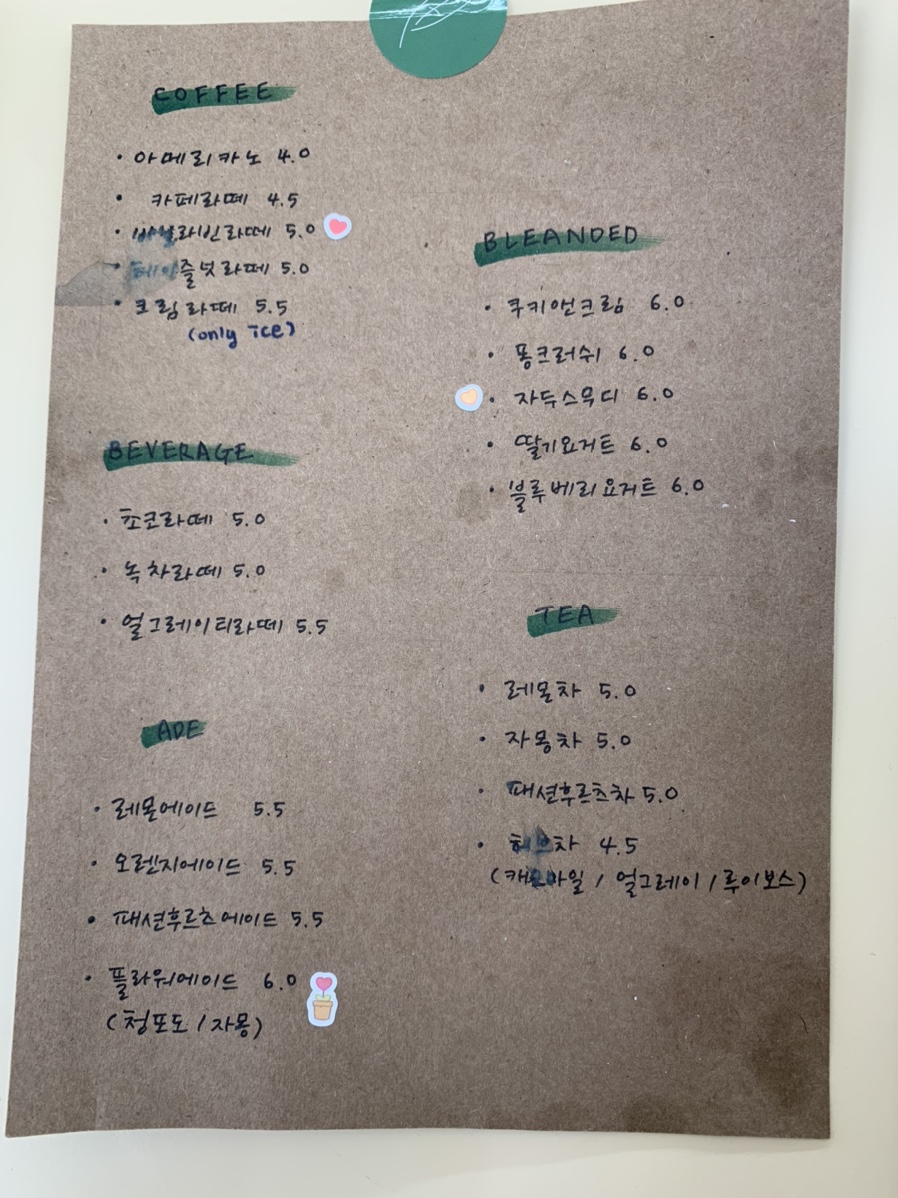 COFFEE
· 아메리카노 4.0
· 카페라떼 4.5
· 바닐라빈라떼 5.0
· 헤이즐넛라떼 5.0
· 크림라떼 5.5
(only ice)
BEVERAGE
· 초코라떼 5.0
· 녹차라떼 5.0
· 얼그레이티라떼 5.5
ADE
· 레몬에이드 5.5
· 오렌지에이드 5.5
· 패션후르츠에이드 5.5
· 플라워에이드 6.0
(청포도 / 자몽)
BLEANDED
· 쿠키앤크림 6.0
· 퐁크러쉬 6.0
· 자두스무디 6.0
· 딸기요거트 6.0
· 블루베리요거트 6.0
TEA
· 레몬차 5.0
· 자몽차 5.0
· 패션후르츠차 5.0
· 허브차 4.5
(캐모마일 / 얼그레이 / 루이보스)